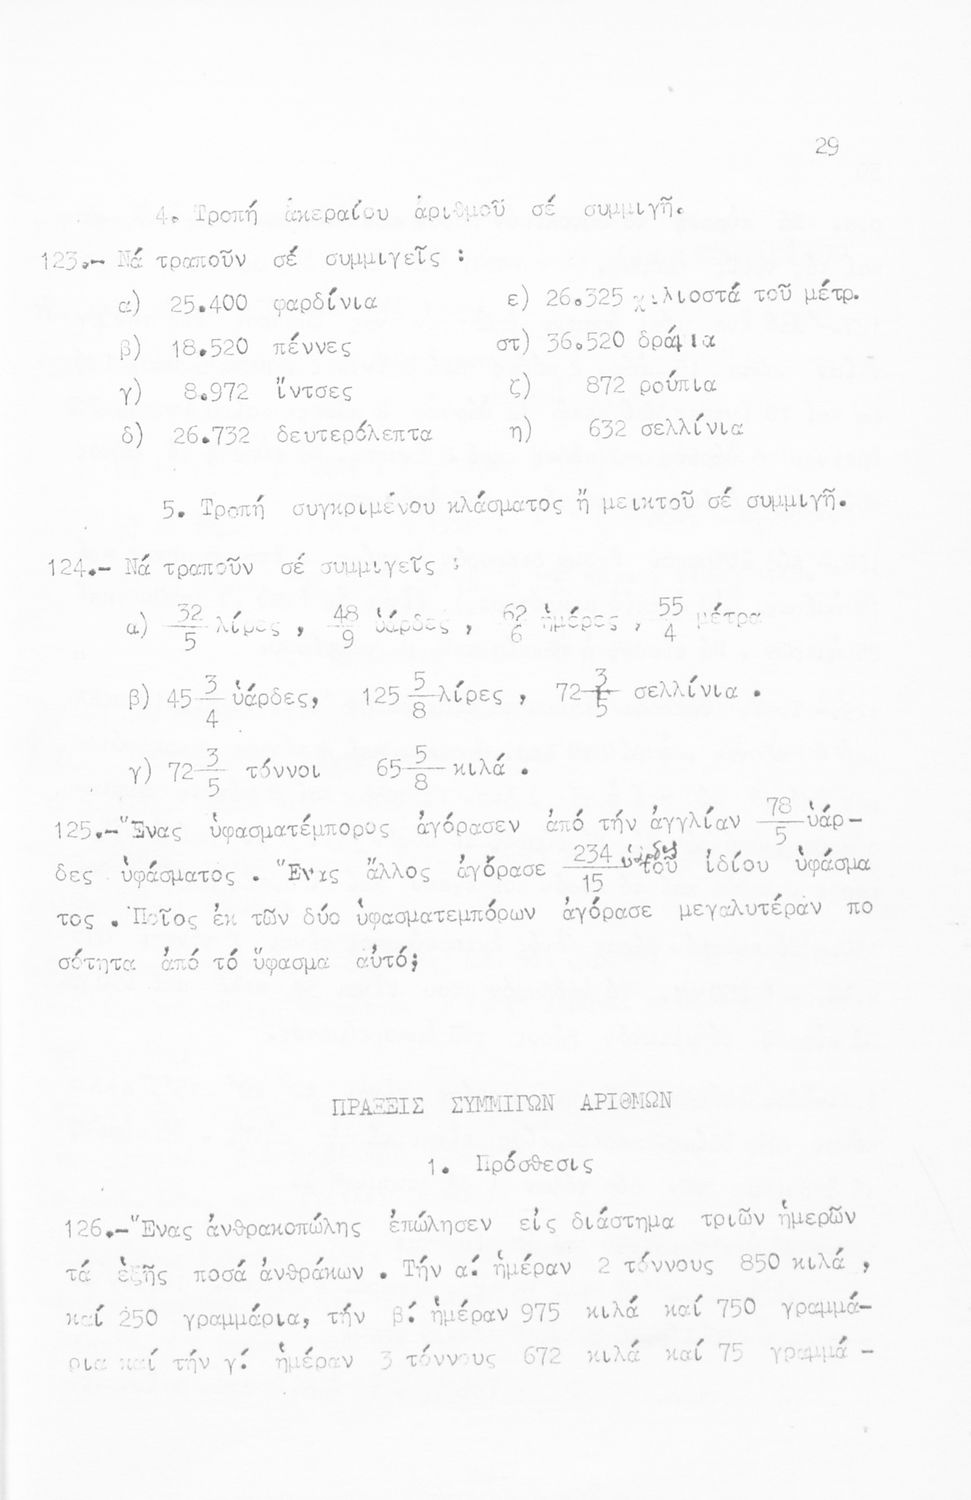 29
4. Τροπή ἀκεραίου ἀριθμοῦ σέ συμμιγῆ.
123.- Νά τραποῦν σέ συμμιγεῖς :
α) 25.400 φαρδίνια ε) 26.325 χιλιοστά τοῦ μέτρ.
β) 18.520 πέννες στ) 36.520 δράμια
γ) 8.972 ἴντσες ζ) 872 ρούπια
δ) 26.732 δευτερόλεπτα η) 632 σελλίνια
5. Τροπή συγκριμένου κλάσματος ἤ μεικτοῦ σέ συμμιγῆ.
124.- Νά τραποῦν σέ συμμιγεῖς :
α) 32/5 λίρες , 48/9 ὑάρδες , 62/6 ἡμέρες , 55/4 μέτρα
β) 45 3/4 ὑάρδες, 125 5/8 λίρες , 72 3/5 σελλίνια .
γ) 72 3/5 τόννοι 65 5/8 κιλά .
125.-Ἕνας ὑφασματέμπορος ἀγόρασεν ἀπό τήν ἀγγλίαν 78/5 ὑάρ-
δες ὑφάσματος . Ἕνας ἄλλος ἀγόρασε 234/15 τοῦ ἰδίου ὑφάσμα
τος . Ποῖος ἐκ τῶν δύο ὑφασματεμπόρων ἀγόρασε μεγαλυτέραν πο
σότητα ἀπό τό ὕφασμα αὐτό;
ΠΡΑΞΕΙΣ ΣΥΜΜΙΓΩΝ ΑΡΙΘΜΩΝ
1. Πρόσθεσις
126.-Ἕνας ἀνθρακοπώλης ἐπώλησεν εἰς διάστημα τριῶν ἡμερῶν
τά ἑξῆς ποσά ἀνθράκων . Τήν α΄ ἡμέραν 2 τόννους 850 κιλά ,
καί 250 γραμμάρια, τήν β΄ ἡμέραν 975 κιλά καί 750 γραμμά-
ρια καί τήν γ΄ ἡμέραν 3 τόννους 672 κιλά καί 75 γραμμά -